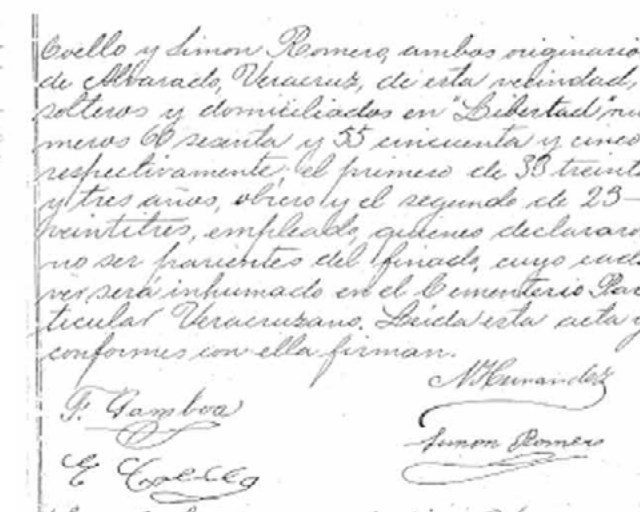 Coello y Simon Romero, ambos originario
de Alvarado, Veracruz, de esta vecindad,
solteros y domiciliados en "Libertad" nu
meros 60 sesenta y 55 cincuenta y cinco
respectivamente; el primero de 33 treint
y tres años, obrero y el segundo de 23-
veintitres, empleado, quienes declararon
no ser parientes del finado, cuyo cadá
ver será inhumado en el Cementerio Par
ticular Veracruzano. Leida esta acta y
conformes con ella firman.
N Hernandez
F. Gamboa
Simon Romero
E Coello